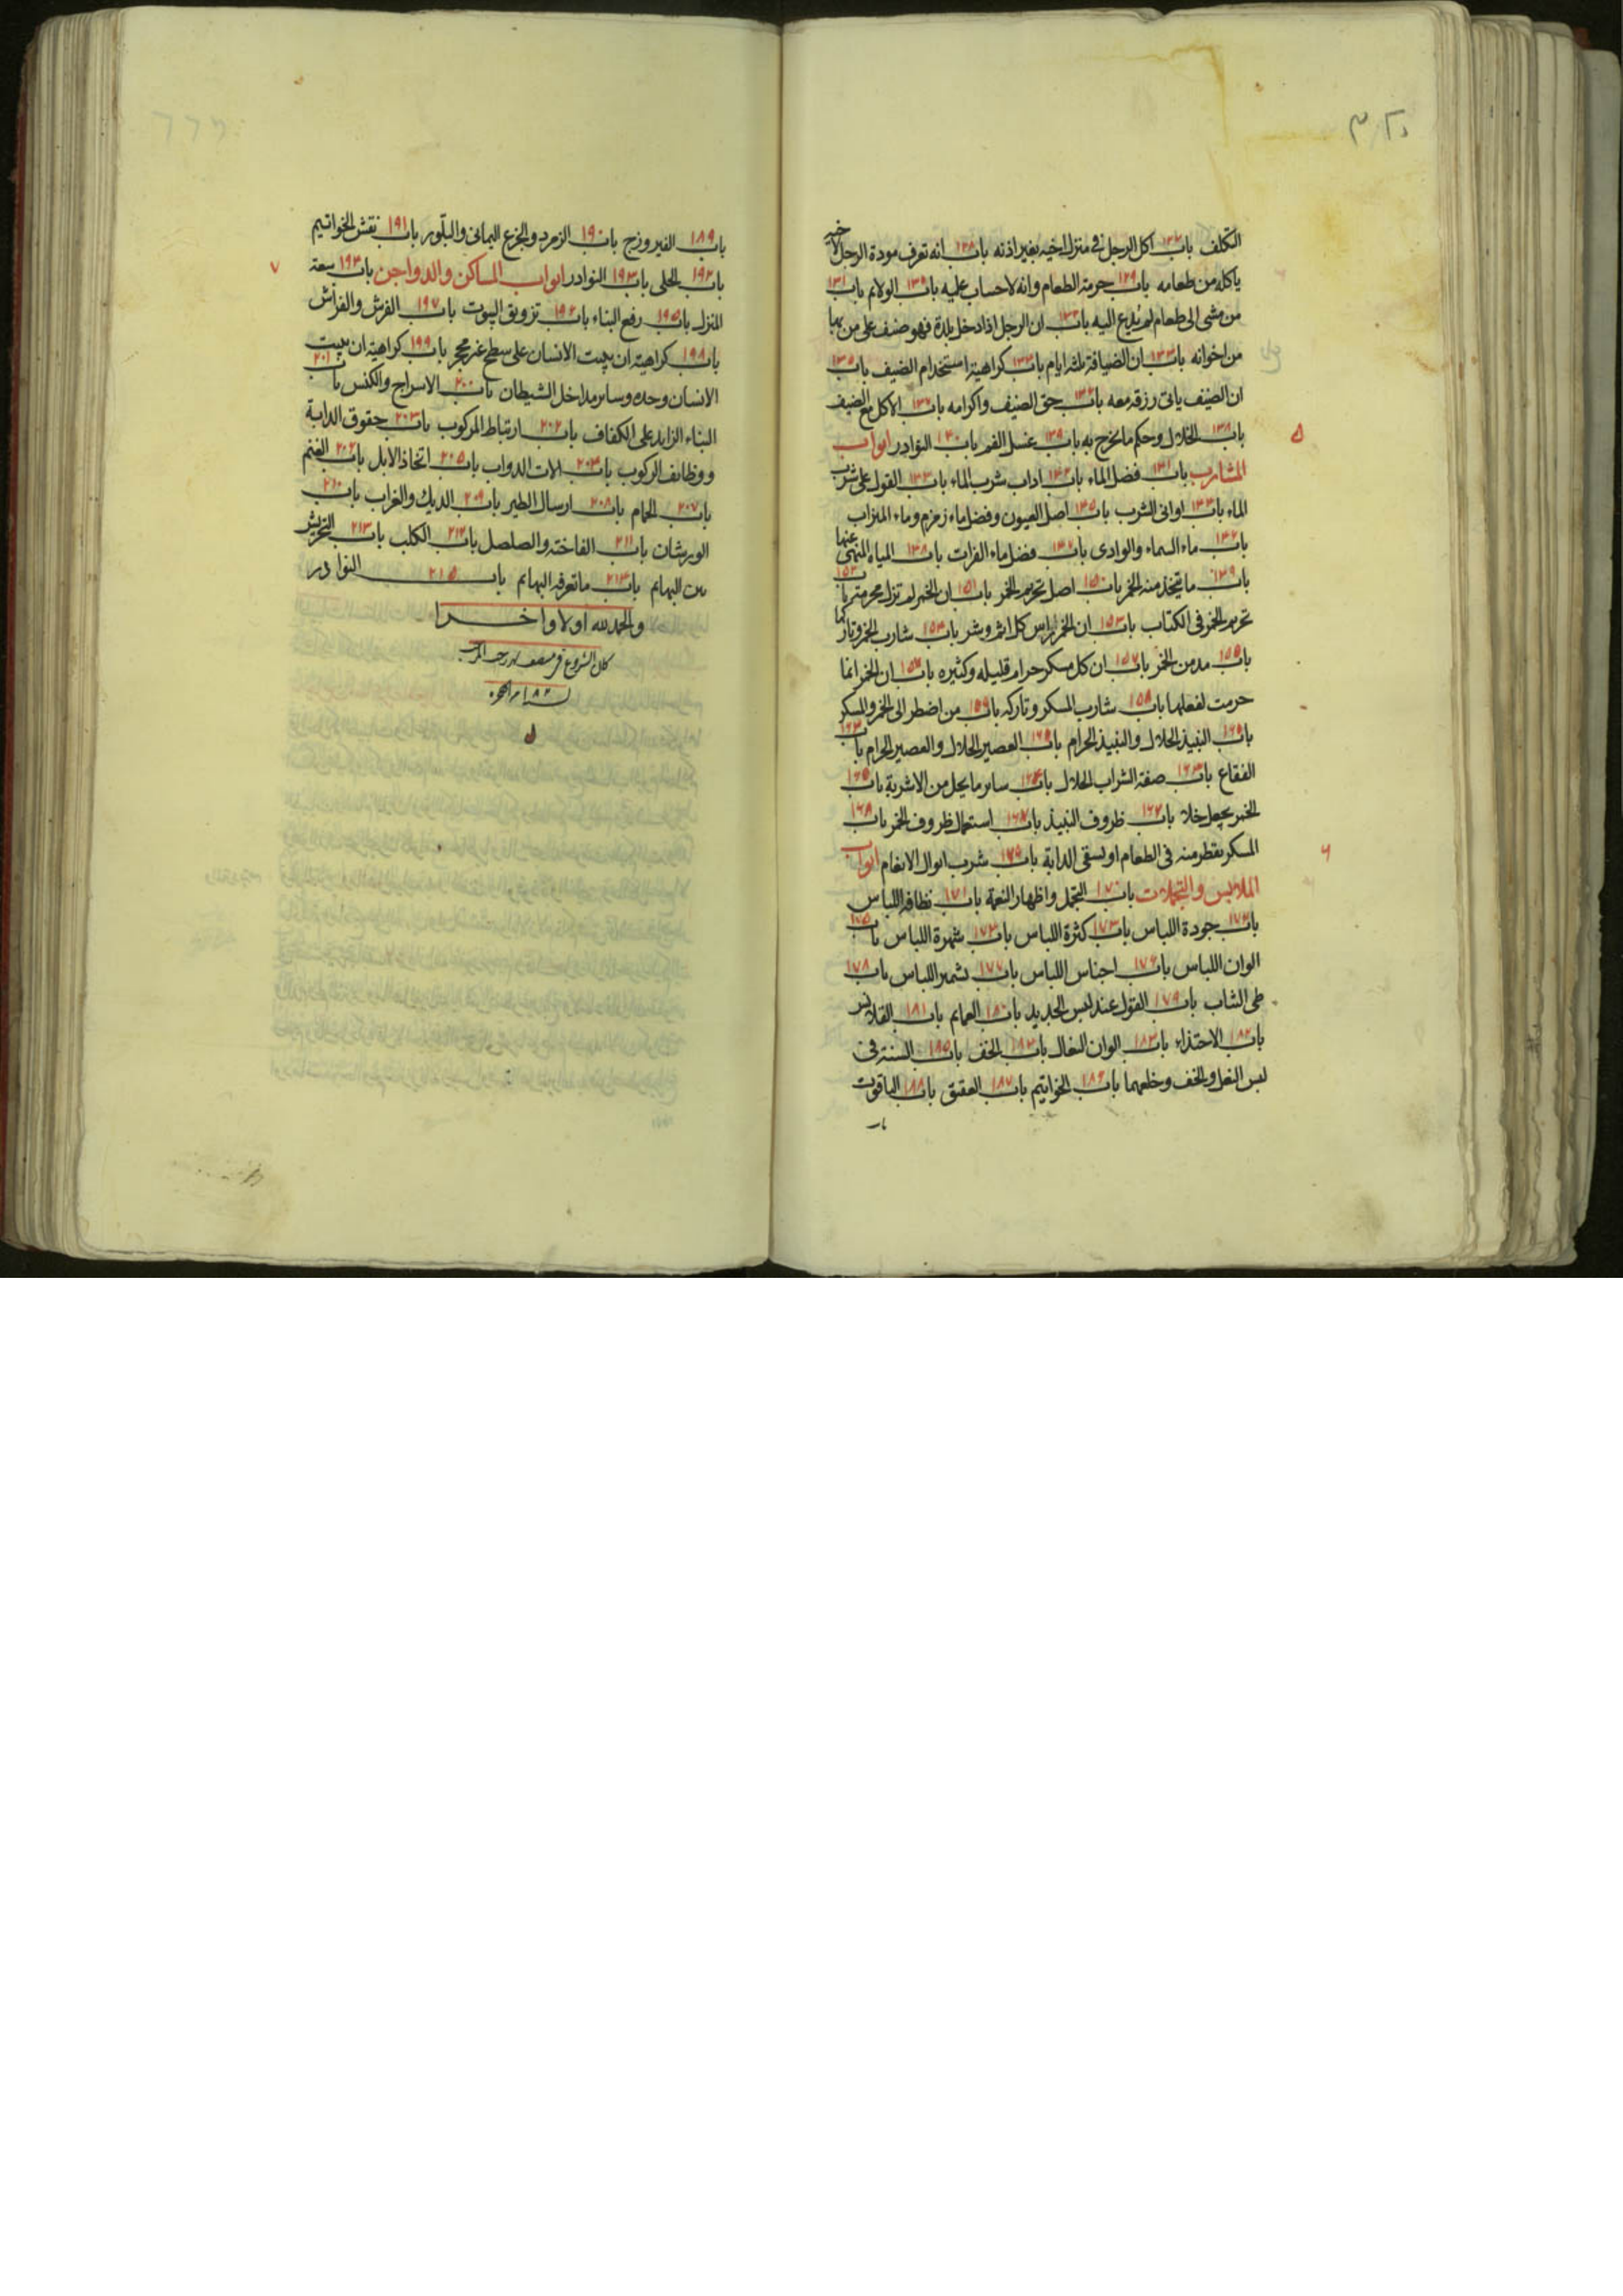 التكلف باب ١٢٧ اكل الرجل فى منزل اخيه بغير اذنه باب ١٢٨ انه تعرف مودة الرجل لاخيه
ياكله من طعامه باب ١٢٩ حرمة الطعام وانه لا حساب عليه باب ١٣٠ الولايم باب ١٣١
من مشى الى طعام لم يدع اليه باب ١٣٢ ان الرجل اذا دخل بلدة فهو ضيف على من بها
من اخوانه باب ١٣٣ ان الضيافة ثلثه ايام باب ١٣٤ كراهية استخدام الضيف باب ١٣٥
ان الضيف ياتى رزقه معه باب ١٣٦ حق الضيف واكرامه باب ١٣٧ الاكل مع الضيف
باب ١٣٨ الخلال وحكم ما يخرج به باب ١٣٩ غسل الفم باب ١٤٠ النوادر ابواب
المشارب باب ١٤١ فضل الماء باب ١٤٢ اداب شرب الماء باب ١٤٣ القول على شرب
الماء باب ١٤٤ اوانى الشرب باب ١٤٥ اصل العيون وفضل ماء زمزم وماء الميزاب
باب ١٤٦ ماء السماء والوادى باب ١٤٧ فضل ماء الفرات باب ١٤٨ المياه المنهى عنها
باب ١٤٩ ما يتخذ منه الخمر باب ١٥٠ اصل تحريم الخمر باب ١٥١ ان الخمر لم تزل محرمة باب ١٥٢
تحريم الخمر فى الكتاب باب ١٥٣ ان الخمر راس كل اثم وشر باب ١٥٤ شارب الخمر وتاركها
باب ١٥٥ مدمن الخمر باب ١٥٦ ان كل مسكر حرام قليله وكثيره باب ١٥٧ ان الخمر انما
حرمت لفعلها باب ١٥٨ شارب المسكر وتاركه باب ١٥٩ من اضطر الى الخمر والمسكر
باب النبيذ الحلال والنبيذ الحرام باب العصير الحلال والعصير الحرام باب
الفقاع باب صفة الشراب الحلال باب ساير ما يحل من الاشربة باب ١٦٥
الخمر يجعل خلا باب ١٦٦ ظروف النبيذ باب ١٦٧ استعمال ظروف الخمر باب ١٦٨
المسكر يقطر منه فى الطعام او يسقى الدابة باب شرب ابوال الانعام ابواب
الملابس والتجملات باب ١٧٠ التجمل واظهار النعمة باب ١٧١ نظافة اللباس
باب ١٧٢ جودة اللباس باب ١٧٣ كثرة اللباس باب ١٧٤ شهرة اللباس باب ١٧٥
الوان اللباس باب ١٧٦ اجناس اللباس باب ١٧٧ تشمير اللباس باب ١٧٨
طى الثياب باب ١٧٩ القول عند لبس الجديد باب ١٨٠ العمايم باب ١٨١ القلانس
باب ١٨٢ الاحتذاء باب ١٨٣ الوان النعال باب ١٨٤ الخف باب ١٨٥ السنة فى
لبس النعل والخف وخلعهما باب ١٨٦ الخواتيم باب ١٨٧ العقيق باب ١٨٨ الياقوت
باب
باب ١٨٩ الفيروزج باب ١٩٠ الزمرد والجزع اليمانى والبلّور باب ١٩١ نقش الخواتيم
باب ١٩٢ الحلى باب ١٩٣ النوادر ابواب المساكن والدواجن باب ١٩٤ سعة
المنزل باب ١٩٥ رفع البناء باب ١٩٦ تزويق البيوت باب ١٩٧ الفرش والفراش
باب ١٩٨ كراهية ان يبيت الانسان على سطح غير محجر باب ١٩٩ كراهية ان يبيت
الانسان وحده وساير مداخل الشيطان باب ٢٠٠ الاسراج والكنس باب ٢٠١
البناء الزايد على الكفاف باب ٢٠٢ ارتباط المركوب باب ٢٠٣ حقوق الدابة
ووظايف الركوب باب ٢٠٤ الات الدواب باب ٢٠٥ اتخاذ الابل باب ٢٠٦ الغنم
باب ٢٠٧ الحمام باب ٢٠٨ ارسال الطير باب ٢٠٩ الديك والغراب باب ٢١٠
الورشان باب ٢١١ الفاختة والصلصل باب ٢١٢ الكلب باب ٢١٣ التحريش
بين البهايم باب ٢١٤ ما تعرفه البهايم باب ٢١٥ النوادر
والحمد لله اولا واخرا
كان الشروع فى